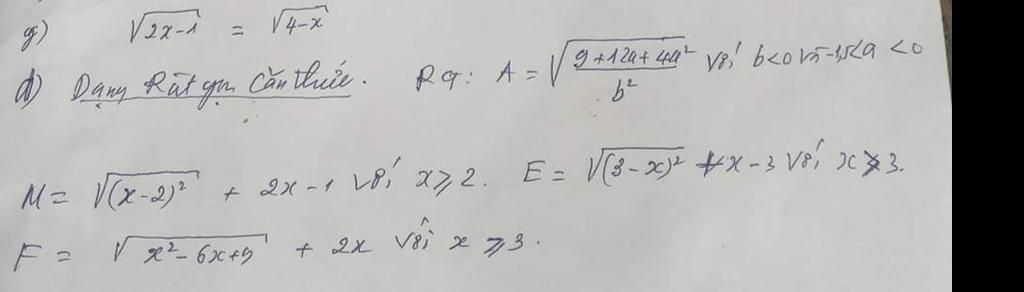 g) √(2x-1) = √(4-x)
d) Dạng Rút gọn Căn thức. RG: A = √((9+12a+4a²)/b²) với b<0 -1,5<a<0
M = √((x-2)²) + 2x-1 với x≥2. E = √((3-x)²) +x-3 với x>3.
F = √(x²-6x+9) + 2x với x ≥3.